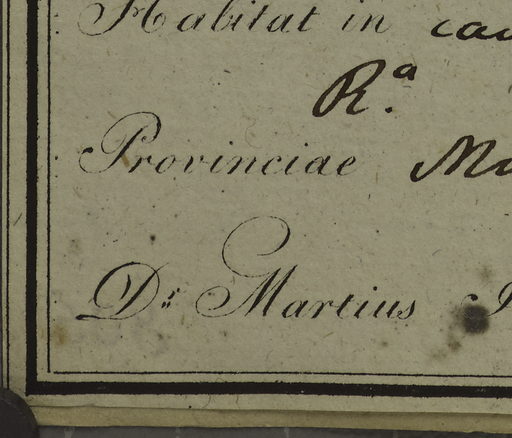 Habitat in
R.ª
Provinciae
Dr. Martius